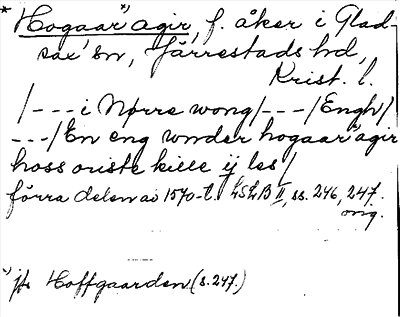 * Hogaar*) agir, f. åker i Glad-
sax' sn, Järrestads hd,
Krist. l.
/---i Nørre wong/---/Engh/
---/En eng wnder hogaar agir
hoss øuiste kiille ij les/
förra delen av 1570-t. LSLB II, ss. 246, 247.
orig.
*) jfr Hoffgaarden (s. 247.)